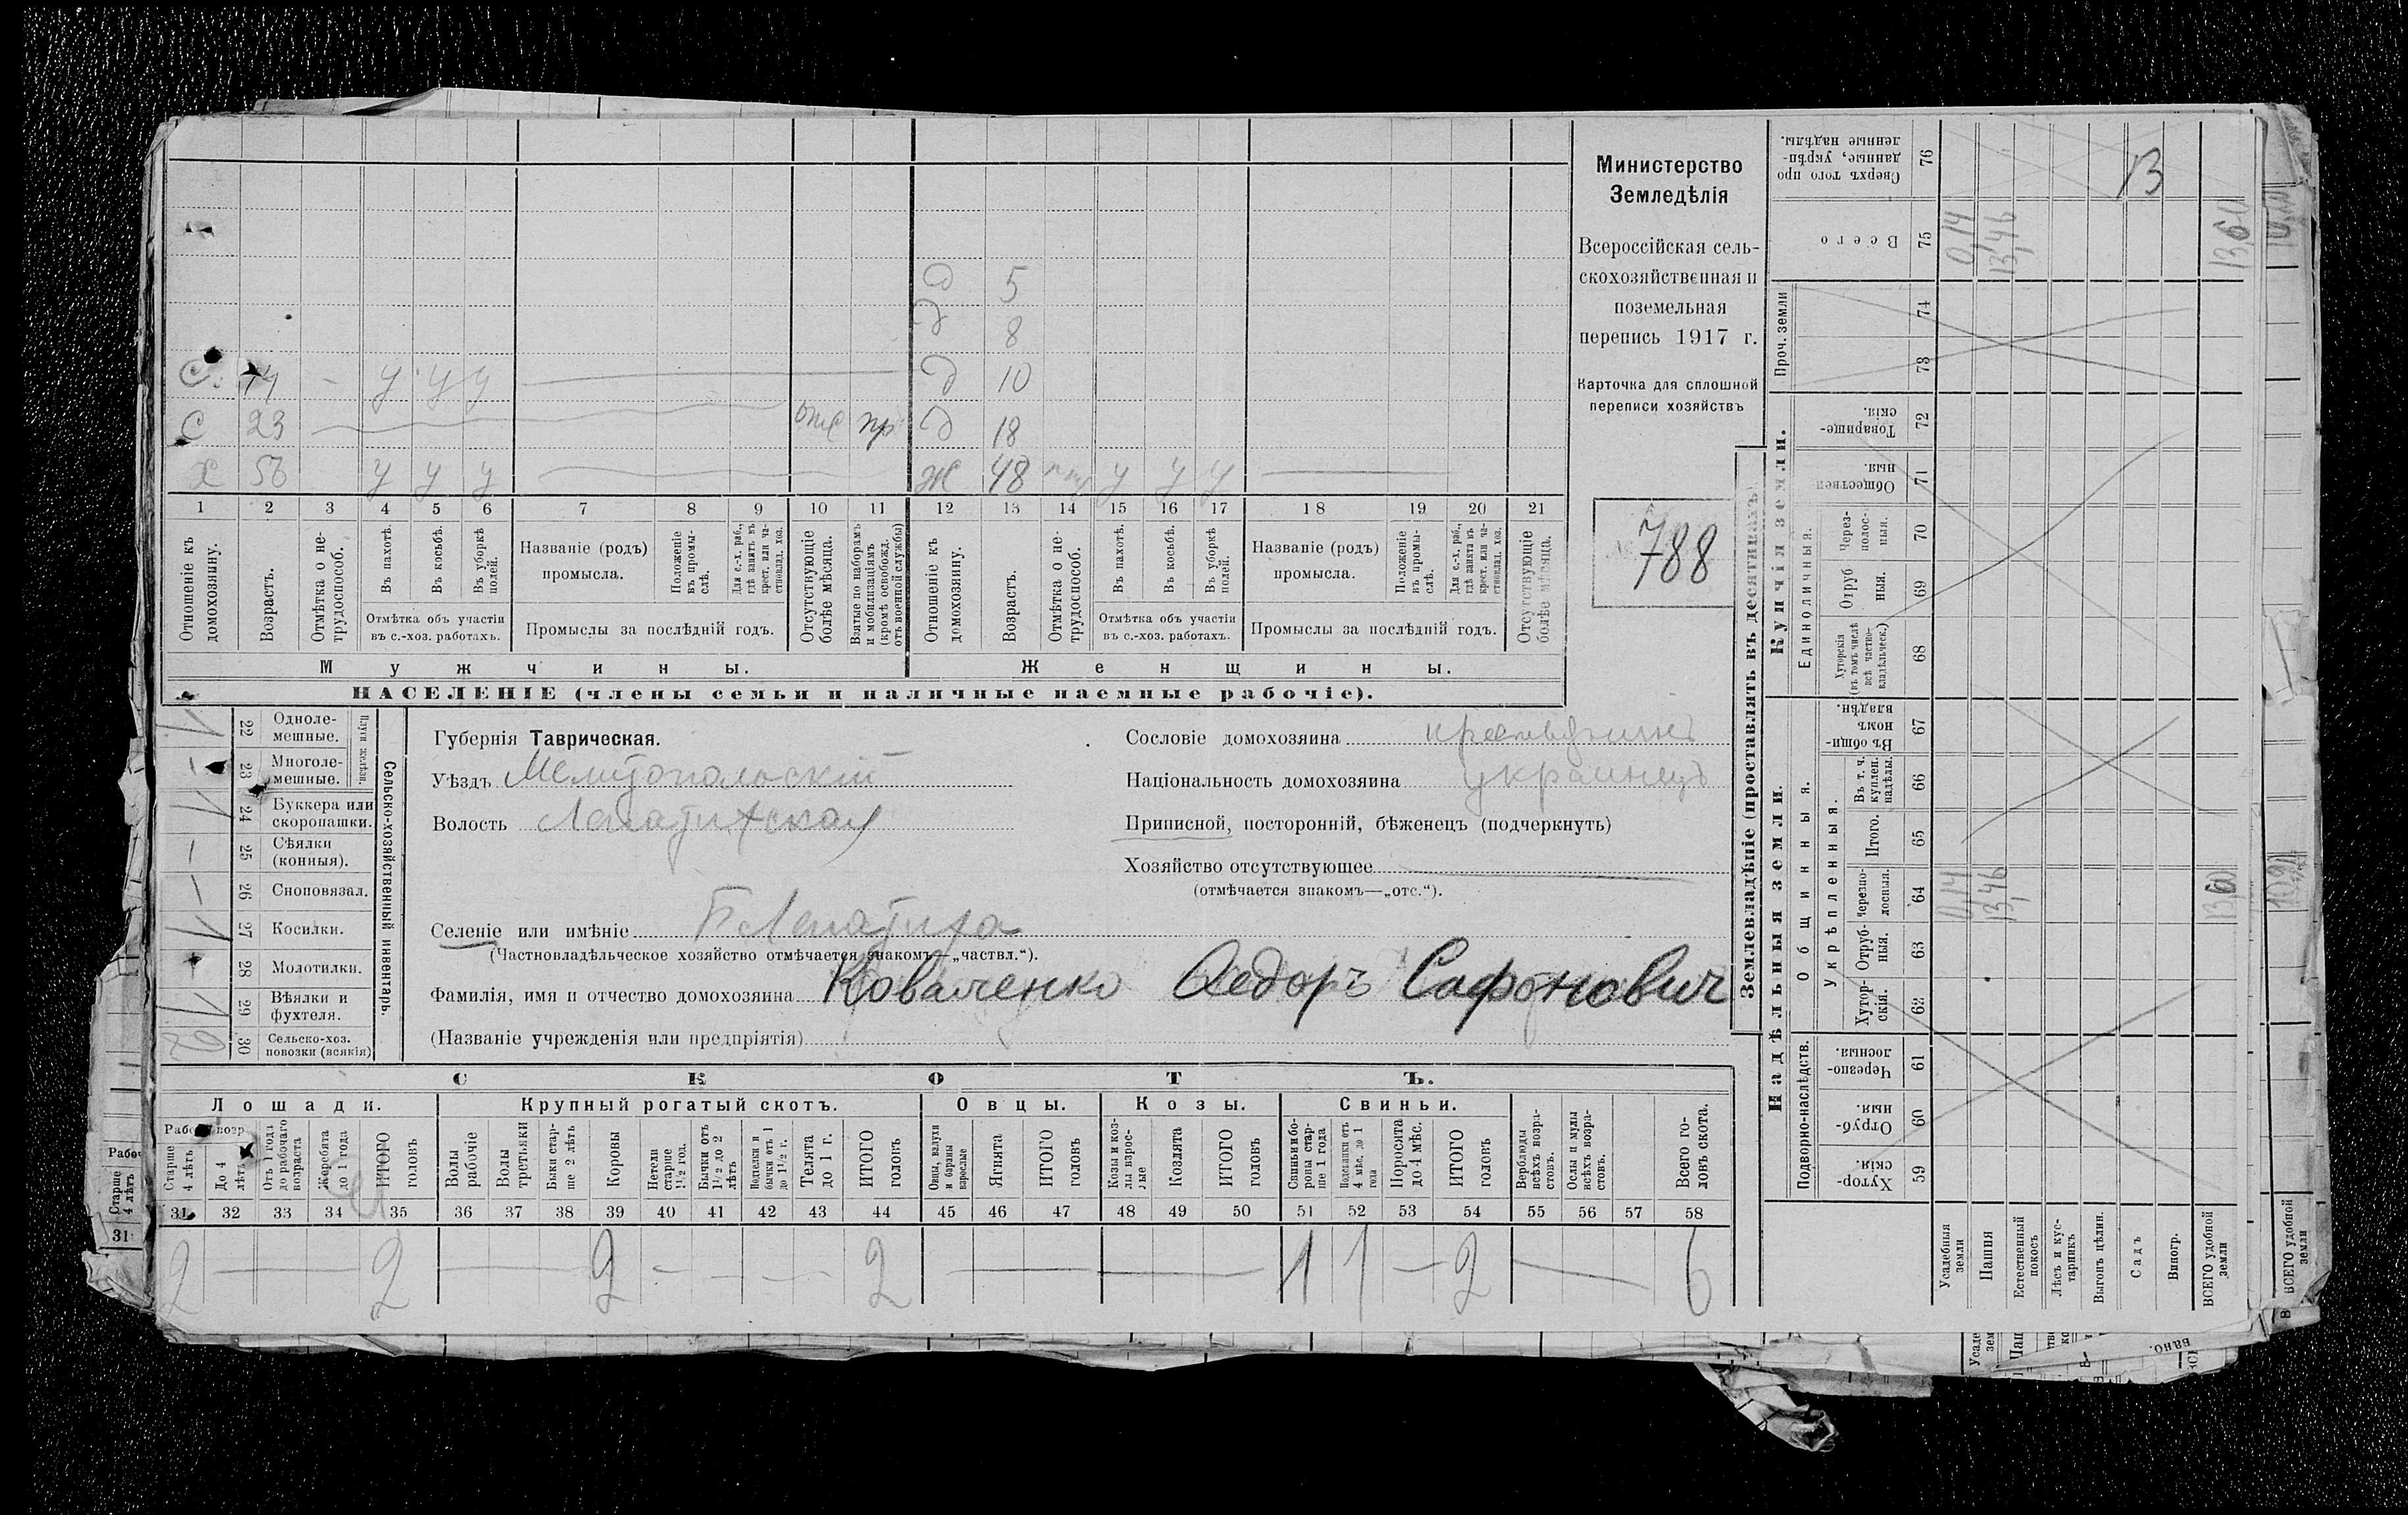 Министерство
Земледѣлія
Всероссійская сель-
скохозяйственная и
поземельная
перепись 1917 г.
Карточка для сплошной
переписи хозяйствъ
788
д 5
д 8
С. 14 – у у у д 10
С 23 отс пр д 18
Х 56 у у у ж 48 у у у
1 2 3 4 5 6 7 8 9 10 11 12 13 14 15 16 17 18 19 20 21
Отношеніе къ домохозяину.
Возрастъ.
Отмѣтка о не-трудоспособ.
Въ пахотѣ.
Въ косьбѣ.
Въ уборкѣ полей.
Отмѣтка объ участіи въ с.-хоз. работахъ.
Названіе (родъ) промысла.
Положеніе въ промы-слѣ.
Для с.-х. раб., гдѣ занятъ въ крест. или ча-стновлад. хоз.
Промыслы за послѣдній годъ.
Отсутствующіе болѣе мѣсяца.
Взятые по наборамъ и мобилизаціямъ (кромѣ освобожд. отъ военной службы)
Отношеніе къ домохозяину.
Возрастъ.
Отмѣтка о не-трудоспособ.
Въ пахотѣ.
Въ косьбѣ.
Въ уборкѣ полей.
Отмѣтка объ участіи въ с.-хоз. работахъ.
Названіе (родъ) промысла.
Положеніе въ промы-слѣ.
Для с.-х. раб., гдѣ занята въ крест. или ча-стновлад. хоз.
Промыслы за послѣдній годъ.
Отсутствующіе болѣе мѣсяца.
Мужчины. Женщины.
НАСЕЛЕНІЕ (члены семьи и наличные наемные рабочіе).
Сельско-хозяйственный инвентарь.
Плуги желѣзн.
22 Одноле-мешные.
23 Многоле-мешные.
24 Буккера или скоропашки.
25 Сѣялки (конныя).
26 Сноповязал.
27 Косилки.
28 Молотилки.
29 Вѣялки и фухтеля.
30 Сельско-хоз. повозки (всякія)
Губернія Таврическая.
Уѣздъ Мелитопольскій
Волость Лепатихская
Селеніе или имѣніе Б Лепатиха
(Частновладѣльческое хозяйство отмѣчается знакомъ—„частвл.“).
Фамилія, имя и отчество домохозяина Коваленко Федоръ Сафонович
(Названіе учрежденія или предпріятія)
Сословіе домохозяина крестьянинъ
Національность домохозяина украинецъ
Приписной, посторонній, бѣженецъ (подчеркнуть)
Хозяйство отсутствующее
(отмѣчается знакомъ—„отс.“).
СКОТЪ.
Лошади. Крупный рогатый скотъ. Овцы. Козы. Свиньи.
Старше 4 лѣтъ
До 4 лѣтъ
Отъ 1 года до рабочаго возраста
Жеребята до 1 года
ИТОГО головъ
Волы рабочіе
Волы третьяки
Быки стар-ше 2 лѣтъ
Коровы
Нетели старше 1½ год.
Бычки отъ 1½ до 2 лѣтъ
Подтелки и бычки отъ 1 до 1½ г.
Телята до 1 г.
ИТОГО головъ
Овцы, валухи и бараны взрослые
Ягнята
ИТОГО головъ
Козы и коз-лы взрос-лые
Козлята
ИТОГО головъ
Свиньи и бо-ровы стар-ше 1 года
Подсвинки отъ 4 мѣс. до 1 года
Поросята до 4 мѣс.
ИТОГО головъ
Верблюды всѣхъ возра-стовъ.
Ослы и мулы всѣхъ возра-стовъ.
Всего го-ловъ скота.
31 32 33 34 35 36 37 38 39 40 41 42 43 44 45 46 47 48 49 50 51 52 53 54 55 56 57 58
2 — 2 — 2 – – – 2 — — 1 1 – 2 — 6
Землевладѣніе (проставлять въ десятинахъ)
Надѣльныя земли. Купчія земли.
Проч. земли
Подворно-наслѣдств.
Общинныя.
Укрѣпленныя.
Единоличныя.
Сверхъ того про данные, укрѣп-ленные надѣлы. 76
Всего 75
74
73
Товарище-скія. 72
Обществен-ныя. 71
Через-полос-ныя. 70
Отруб ныя. 69
Хуторскія (въ томъ числѣ всѣ частно-владѣльческ.) 68
Въ общи-номъ владѣн. 67
Въ т. ч. куплен. надѣлы. 66
Итого. 65
Черезпо-лосныя. 64
Отруб-ныя. 63
Хутор-скія. 62
Черезпо-лосныя. 61
Отруб-ныя. 60
Хутор-скія. 59
0,14 13,46 13,60
0,14 13,46 13,60
13
Усадебныя земли
Пашня
Естественный покосъ
Лѣсъ и кус-тарникъ
Выгонъ цѣлин.
Садъ
Виногр.
ВСЕГО удобной земли
ВСЕГО удобной земли
Старше 4 лѣтъ
31